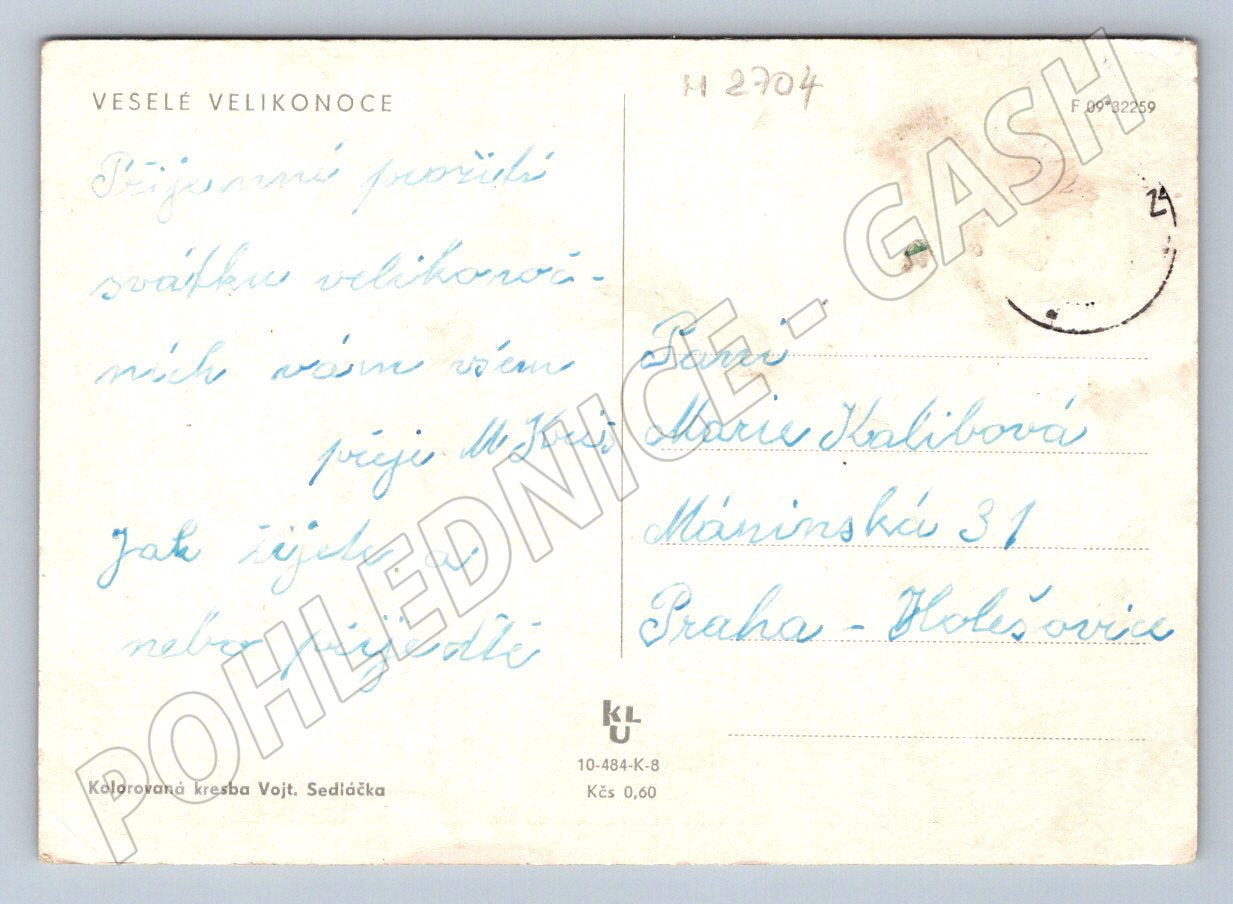 VESELÉ VELIKONOCE
Příjemné prožití
svátku velikonoč-
ních vám všem
přeje M
Jak žijete a
nebo přijedtě
Kolorovaná kresba Vojt. Sedláčka
M 2704
F 09*32259
24
Paní
Marie Kalibová
Máninská 31
Praha - Holešovice
KLU
10-484-K-8
Kčs 0,60
POHLEDNICE - GASH